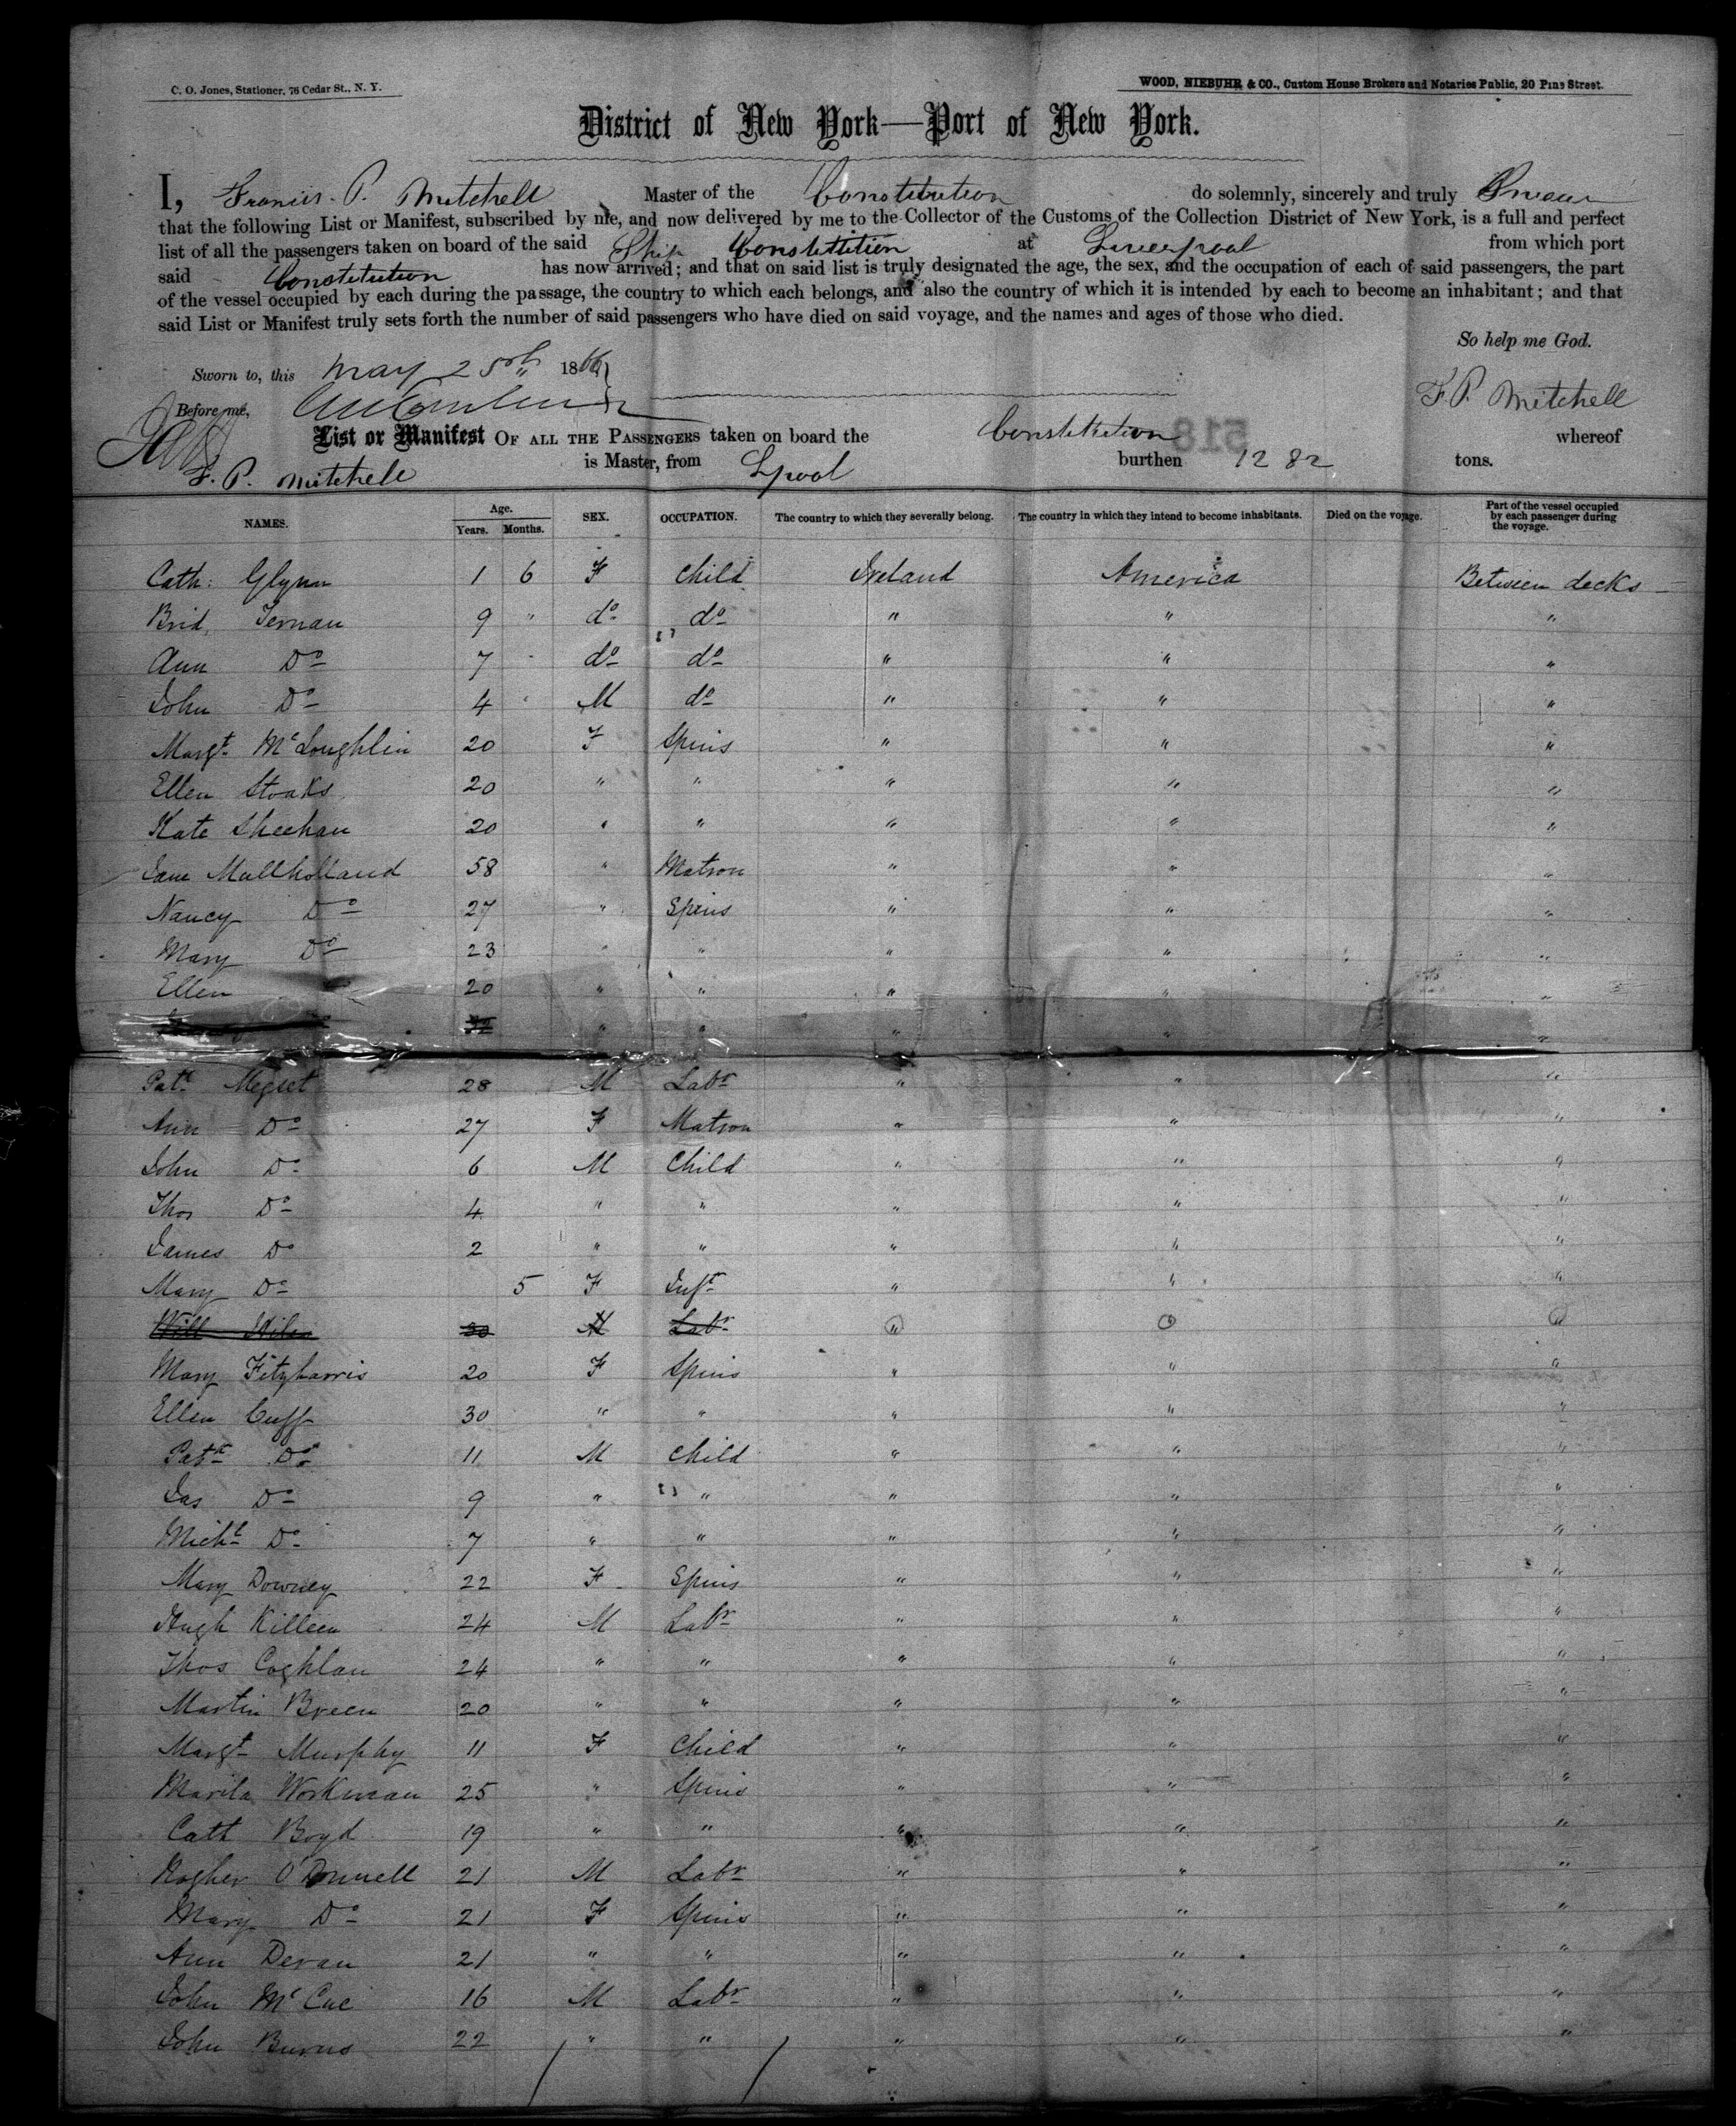 C. O. Jones, Stationer, 76 Cedar St., N. Y.
WOOD, NIEBUHR & CO., Custom House Brokers and Notaries Public, 20 Pine Street.
District of New York—Port of New York.
I, Francis. P. Mitchell Master of the Constitution do solemnly, sincerely and truly Swear
that the following List or Manifest, subscribed by me, and now delivered by me to the Collector of the Customs of the Collection District of New York, is a full and perfect
list of all the passengers taken on board of the said Ship Constitution at Liverpool from which port
said Constitution has now arrived; and that on said list is truly designated the age, the sex, and the occupation of each of said passengers, the part
of the vessel occupied by each during the passage, the country to which each belongs, and also the country of which it is intended by each to become an inhabitant; and that
said List or Manifest truly sets forth the number of said passengers who have died on said voyage, and the names and ages of those who died.
So help me God.
Sworn to, this May 25th 1866
F. P. Mitchell
Before me,
List or Manifest OF ALL THE PASSENGERS taken on board the Constitution whereof
518
F. P. Mitchell is Master, from Lpool burthen 1282 tons.
NAMES. Age. Years. Months. SEX. OCCUPATION. The country to which they severally belong. The country in which they intend to become inhabitants. Died on the voyage. Part of the vessel occupied by each passenger during the voyage.
Cath: Glynn 1 6 F Child Ireland America Between decks
Brid. Ternan 9 " do do " " "
Ann Do 7 " do do " " "
John Do 4 " M do " " "
Margt McLoughlin 20 F Spins " " "
Ellen Stoaks 20 " " " " "
Kate Sheehan 20 " " " " "
Jane Mullholland 58 " Matron " " "
Nancy Do 27 " Spins " " "
Mary Do 23 " " " " "
Ellen 20 " " " " "
" " " " "
Patk Megret 28 M Labr " " "
Ann Do 27 F Matron " " "
John Do 6 M Child " " "
Thos Do 4 " " " " "
James Do 2 " " " " "
Mary Do 5 F Inft " " "
Will 30 M Labr " " "
Mary Fitzharris 20 F Spins " " "
Ellen Cuff 30 " " " " "
Patk Do 11 M Child " " "
Jas Do 9 " " " " "
Michl Do 7 " " " " "
Mary Downey 22 F Spins " " "
Hugh Killeen 24 M Labr " " "
Thos Coghlan 24 " " " " "
Martin Breen 20 " " " " "
Margt Murphy 11 F Child " " "
Workman 25 " Spins " " "
Cath Boyd 19 " " " " "
O'Donnell 21 M Labr " " "
Mary Do 21 F Spins " " "
Ann Devan 21 " " " " "
John McCue 16 M Labr " " "
John Burns 22 " " " " "